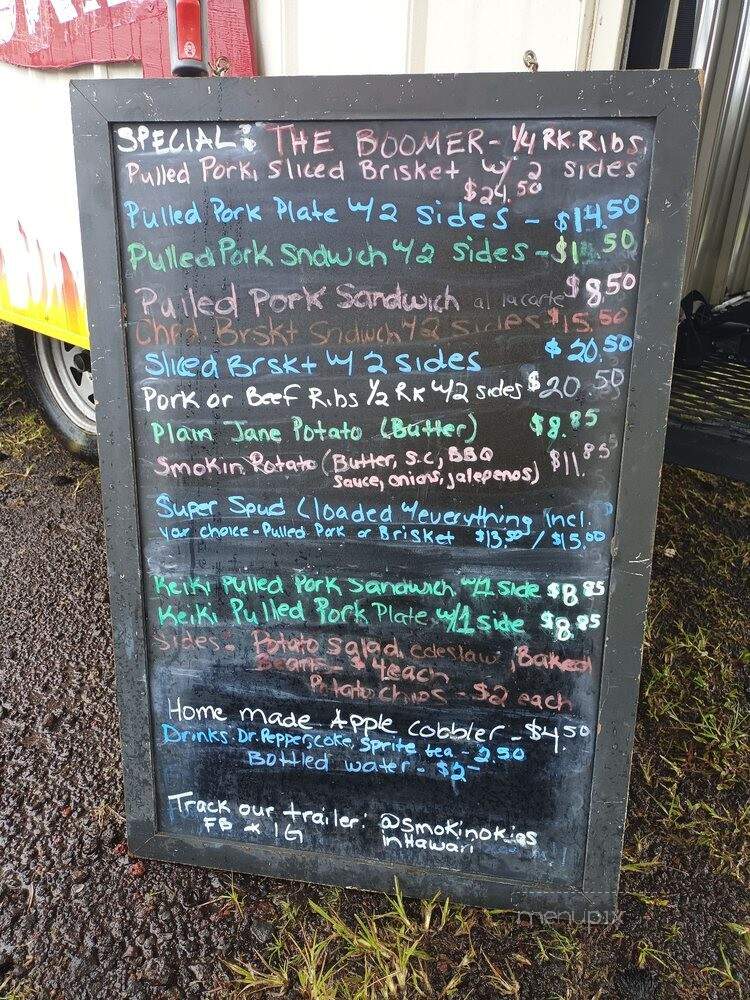 SPECIAL: THE BOOMER - 1/4 RK. Ribs,
Pulled Pork, Sliced Brisket w/ 2 sides
$24.50
Pulled Pork Plate w/2 sides - $14.50
Pulled Pork Sndwch w/2 sides -
Pulled Pork Sandwich al lacarte $8.50
Chpd Brskt Sndwch w/2 sides $15.50
Sliced Brskt w/ 2 sides $20.50
Pork or Beef Ribs 1/2 RK w/2 sides $20.50
Plain Jane Potato (Butter) $8.85
Smokin Potato (Butter, S.C, BBQ $11.85
sauce, onions, jalepenos)
Super Spud (loaded w/everything Incl.
your choice - Pulled Pork or Brisket $13.50 / $15.00
Keiki Pulled Pork Sandwich w/1 side $8.85
Keiki Pulled Pork Plate w/1 side $8.85
Sides - Potato Salad, coleslaw, Baked
Beans - $4each
Potato chips - $2 each
Home made Apple cobbler - $4.50
Drinks. Dr. Pepper, coke, Sprite tea - 2.50
Bottled water - $2-
Track our trailer: @Smokinokies
FB * IG inHawaii
menupix